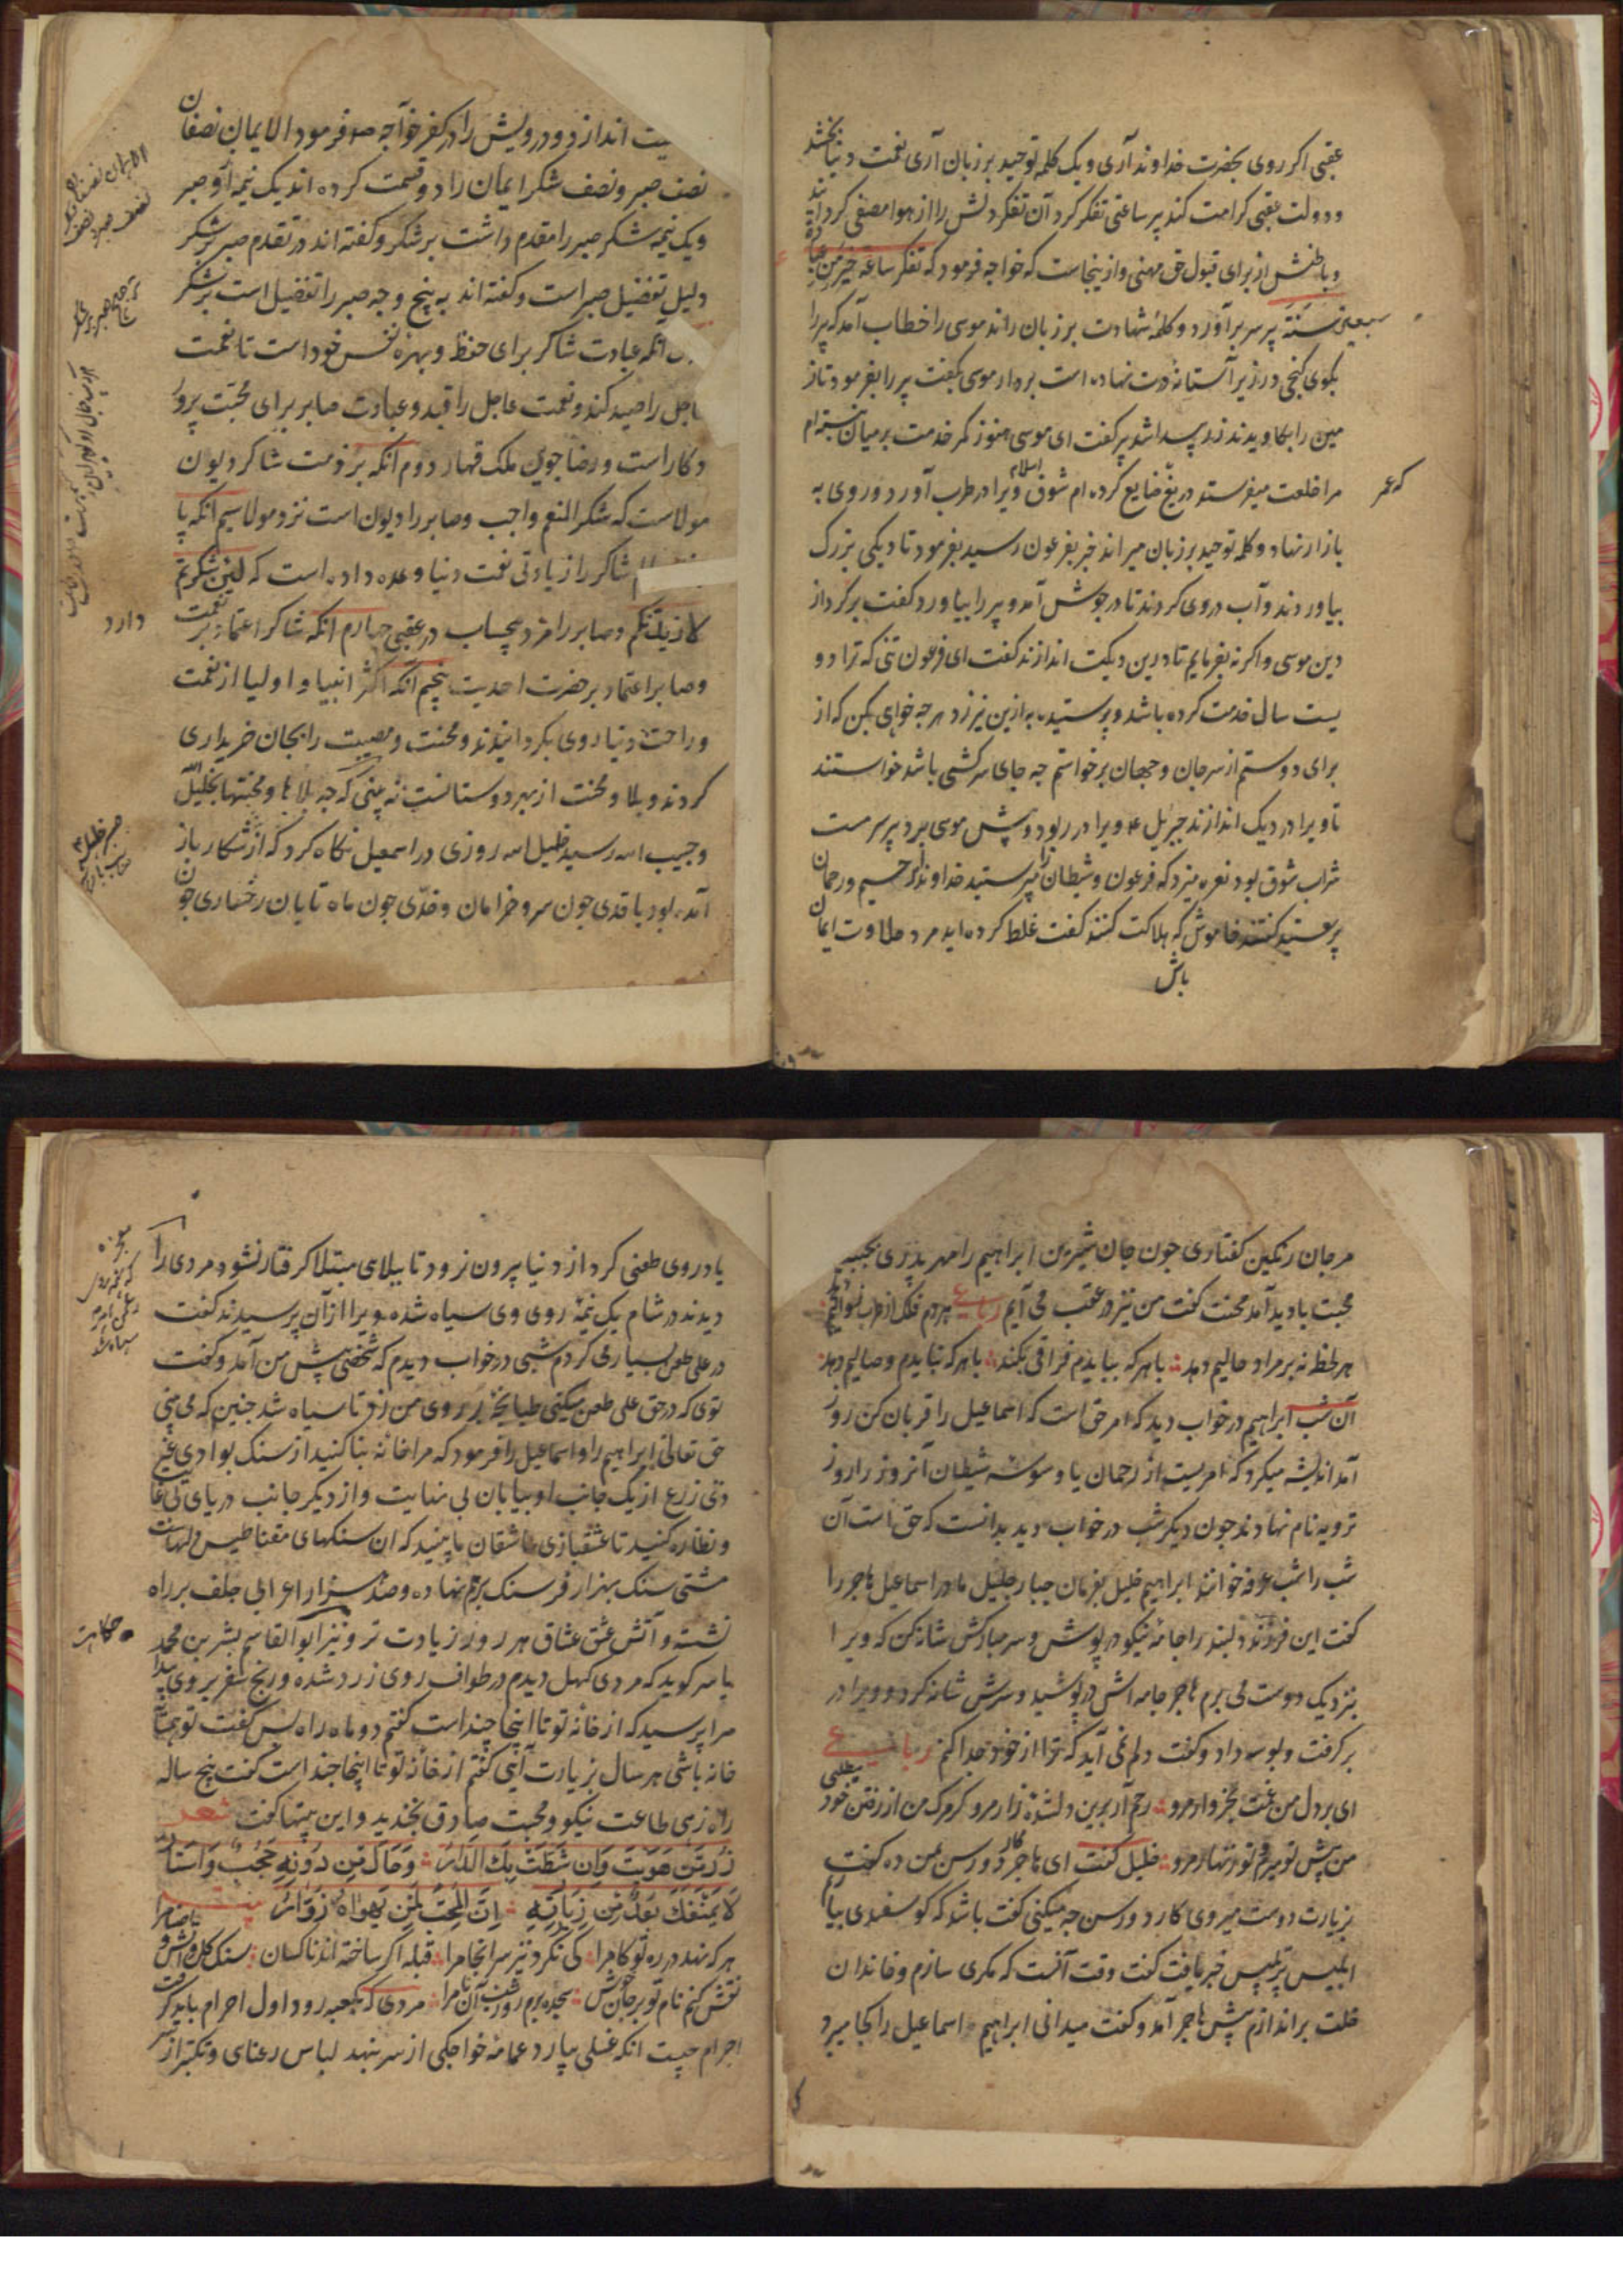 عقبی اکر روی بحضرت خداوند آری و یک کلمه توحید بر زبان آری نعمت دنیا بخشد
و دولت عقبی کرامت کند پیر ساعتی تفکر کرد آن تفکر دلش را از هوا مصفی کردانید
و باطنش از برای قبول حق مهنی و از ینجاست که خواجه فرمود که تفکر ساعة خیر من عبادة
سبعین سنة پیر سر برآورد و کلمه شهادت بر زبان راند موسی را خطاب آمد که پیر را
بکوی کنجی در زیر آستانه درت نهاده است بردار موسی بکفت پیر را بفرمود تا ز
مین را بکاویدند زر پیدا شد پیر کفت ای موسی هنوز کمر خدمت بر میان نبسته ام
مرا خلعت میفرستد دریغ ضایع کرده ام شوق اسلام ویرا در طرب آورد و روی به
که عمر
بازار نهاد و کلمه توحید بر زبان میراند خبر بفرعون رسید بفرمود تا دیکی بزرک
بیاوردند و آب در وی کردند تا در جوش آمد و پیر را بیاورد کفت برکرد از
دین موسی و اکر نه بفرمایم تا درین دیکت اندازند کفت ای فرعون تنی که ترا دو
یست سال خدمت کرده باشد و پرستیده به ازین نیرزد هر چه خواهی بکن که از
برای دوستم از سر جان و جهان برخواستم چه جای سرکشی باشد خواستند
تا ویرا در دیک اندازند جبریل ء ویرا در ربود و پیش موسی برد پیر سرمست
شراب شوق بود نعره میزد که فرعون و شیطان را مپرستید خداوند رحیم و رحمان
پرستید کفتند خاموش که هلاکت کنند کفت غلط کرده اید مرد حلاوت ایمان
یاش
یت اندازد و درویش را در کفر خواجه صم فرمود الایمان نصفان
نصف صبر و نصف شکر ایمان را دو قسمت کرده اند یک نیمه او صبر
و یک نیمه شکر صبر را مقدم داشت بر شکر و کفته اند در تقدم صبر بر شکر
دلیل تفضیل صبر است و کفته اند به پنج وجه صبر را تفضیل است بر شکر
انکه عبادت شاکر برای حفظ و بهره نفس خود است تا نعمت
اجل را صید کند و نعمت عاجل را قید و عبادت صابر برای محبت پرو
دکار است و رضا جوی ملک قهار دوم انکه بر ذمت شاکر دیون
مولاست که شکر المنعم واجب و صابر را دیون است نزد مولا سیم انکه پا
شاکر را زیادتی نعمت دنیا وعده داده است که لئن شکرتم
لازیدنکم و صابر را مزد بیحساب در عقبی چهارم انکه شاکر اعتماد بر نعمت
دارد
و صابر اعتماد بر حضرت احدیت پنجم انکه اکثر انبیا و اولیا از نعمت
و راحت دنیا روی بکردانیدند و محنت و مصیبت را بجان خریداری
کردند و بلا و محنت از بهر دوستانست نه بینی که چه بلاها و محنتها بخلیل الله
و حبیب الله رسید خلیل الله روزی در اسمعیل نکاه کرد که از شکار باز
آمده بود با قدی چون سرو خرامان و خدّی چون ماه تابان رخساری چون
مرجان رنکین کفتاری چون جان شیرین ابراهیم را مهر پدری بجنبید
محبت بادید آمد محنت کفت من نیز در عقب می آیم رباعی هر دم فلک از طرب نوالیم
هر لحظه نه بر مراد حالیم دهد با هر که بباید م فراقی بکند با هر که نباید م وصالیم دهد
آن شب ابراهیم در خواب دید که امر حق است که اسماعیل را قربان کن روز
آمد اندیشه میکرد که امریست از رحمان یا وسوسه شیطان آنروز را روز
ترویه نام نهادند چون دیکر شب در خواب دید بدانست که حق است آن
شب را شب عرفه خوانند ابراهیم خلیل بفرمان جبار جلیل مادر اسماعیل هاجر را
کفت این فرزند دلبند را جامه نیکو در پوش و سر مبارکش شانه کن که ویرا
بنزدیک دوست می برم هاجر جامه اش در پوشید و سرش شانه کرد و ویرا در
بر کرفت و بوسه داد و کفت دلم نمی آید که ترا از خود جدا کنم رباعی
ای بر دل من رحم آر برین دلشده زار مرو از رفتن خود
من پیش تو میرم تو زنهار مرو خلیل کفت ای هاجر کارد و رسن بمن ده کفت
بزیارت دوست میروی کارد و رسن چه میکنی کفت باشد که کوسفندی بیایم
ابلیس پرتلبیس خبر یافت کفت وقت آنست که مکری سازم و خاندان
خلت براندازم پیش هاجر آمد و کفت میدانی ابراهیم اسماعیل را کجا میبرد
یا در وی طعنی کرد از دنیا بیرون نرود تا ببلای مبتلا کرفتار نشود مردی را
دیدند در شام یک نیمه روی وی سیاه شده ویرا از آن پرسیدند کفت
در علی طعن بسیاری کردم شبی در خواب دیدم که شخصی پیش من آمد و کفت
توی که در حق علی طعن میکنی طپانچه بر روی من زد تا سیاه شد چنین که می بینی
حق تعالی ابراهیم را و اسماعیل را فرمود که مرا خانه بنا کنید از سنک بوادی غیر
ذی زرع از یک جانب او بیابان بی نهایت و از دیکر جانب دریای بی غایت
و نظاره کنید تا عشقبازی عاشقان ما بینید که ان سنکهای مقناطیس دلهاست
مشتی سنک بهزار فرسنک بر هم نهاده و صد هزار اعرابی جلف بر راه
نشسته و آتش عشق عشاق هر روز زیادت تر و نیز ابو القاسم بشر بن محمد
حکایت
یاسر کوید که مردی کهل دیدم در طواف روی زرد شده و رنج سفر بر وی پیدا
مرا پرسید که از خانه تو تا اینجا چند است کفتم دو ماه راه پس کفت تو همسایه
خانه باشی هر سال بزیارت آیی کفتم از خانه تو تا اینجا چند است کفت پنج ساله
راه زهی طاعت نیکو و محبت صادق بخندید و این بیتها کفت شعر
زر من هویت و ان شطت بک الدار وحال من دونه حجب واستار
لا یمنعنک بعد من زیارته ان المحب لمن یهواه زوار
هر که نهد در ره تو کامرا کی نکرد نیز سرانجام را قبله اکر ساخته اند ناکسان
نقش کنم نام تو بر جان خویش سجده برم روز و شب آن نام را مردی که بکعبه رود اول احرام باید کرفت
احرام چیست انکه غسلی بیارد عمامه خواجکی از سر بنهد لباس رعنای و تکبر از سر